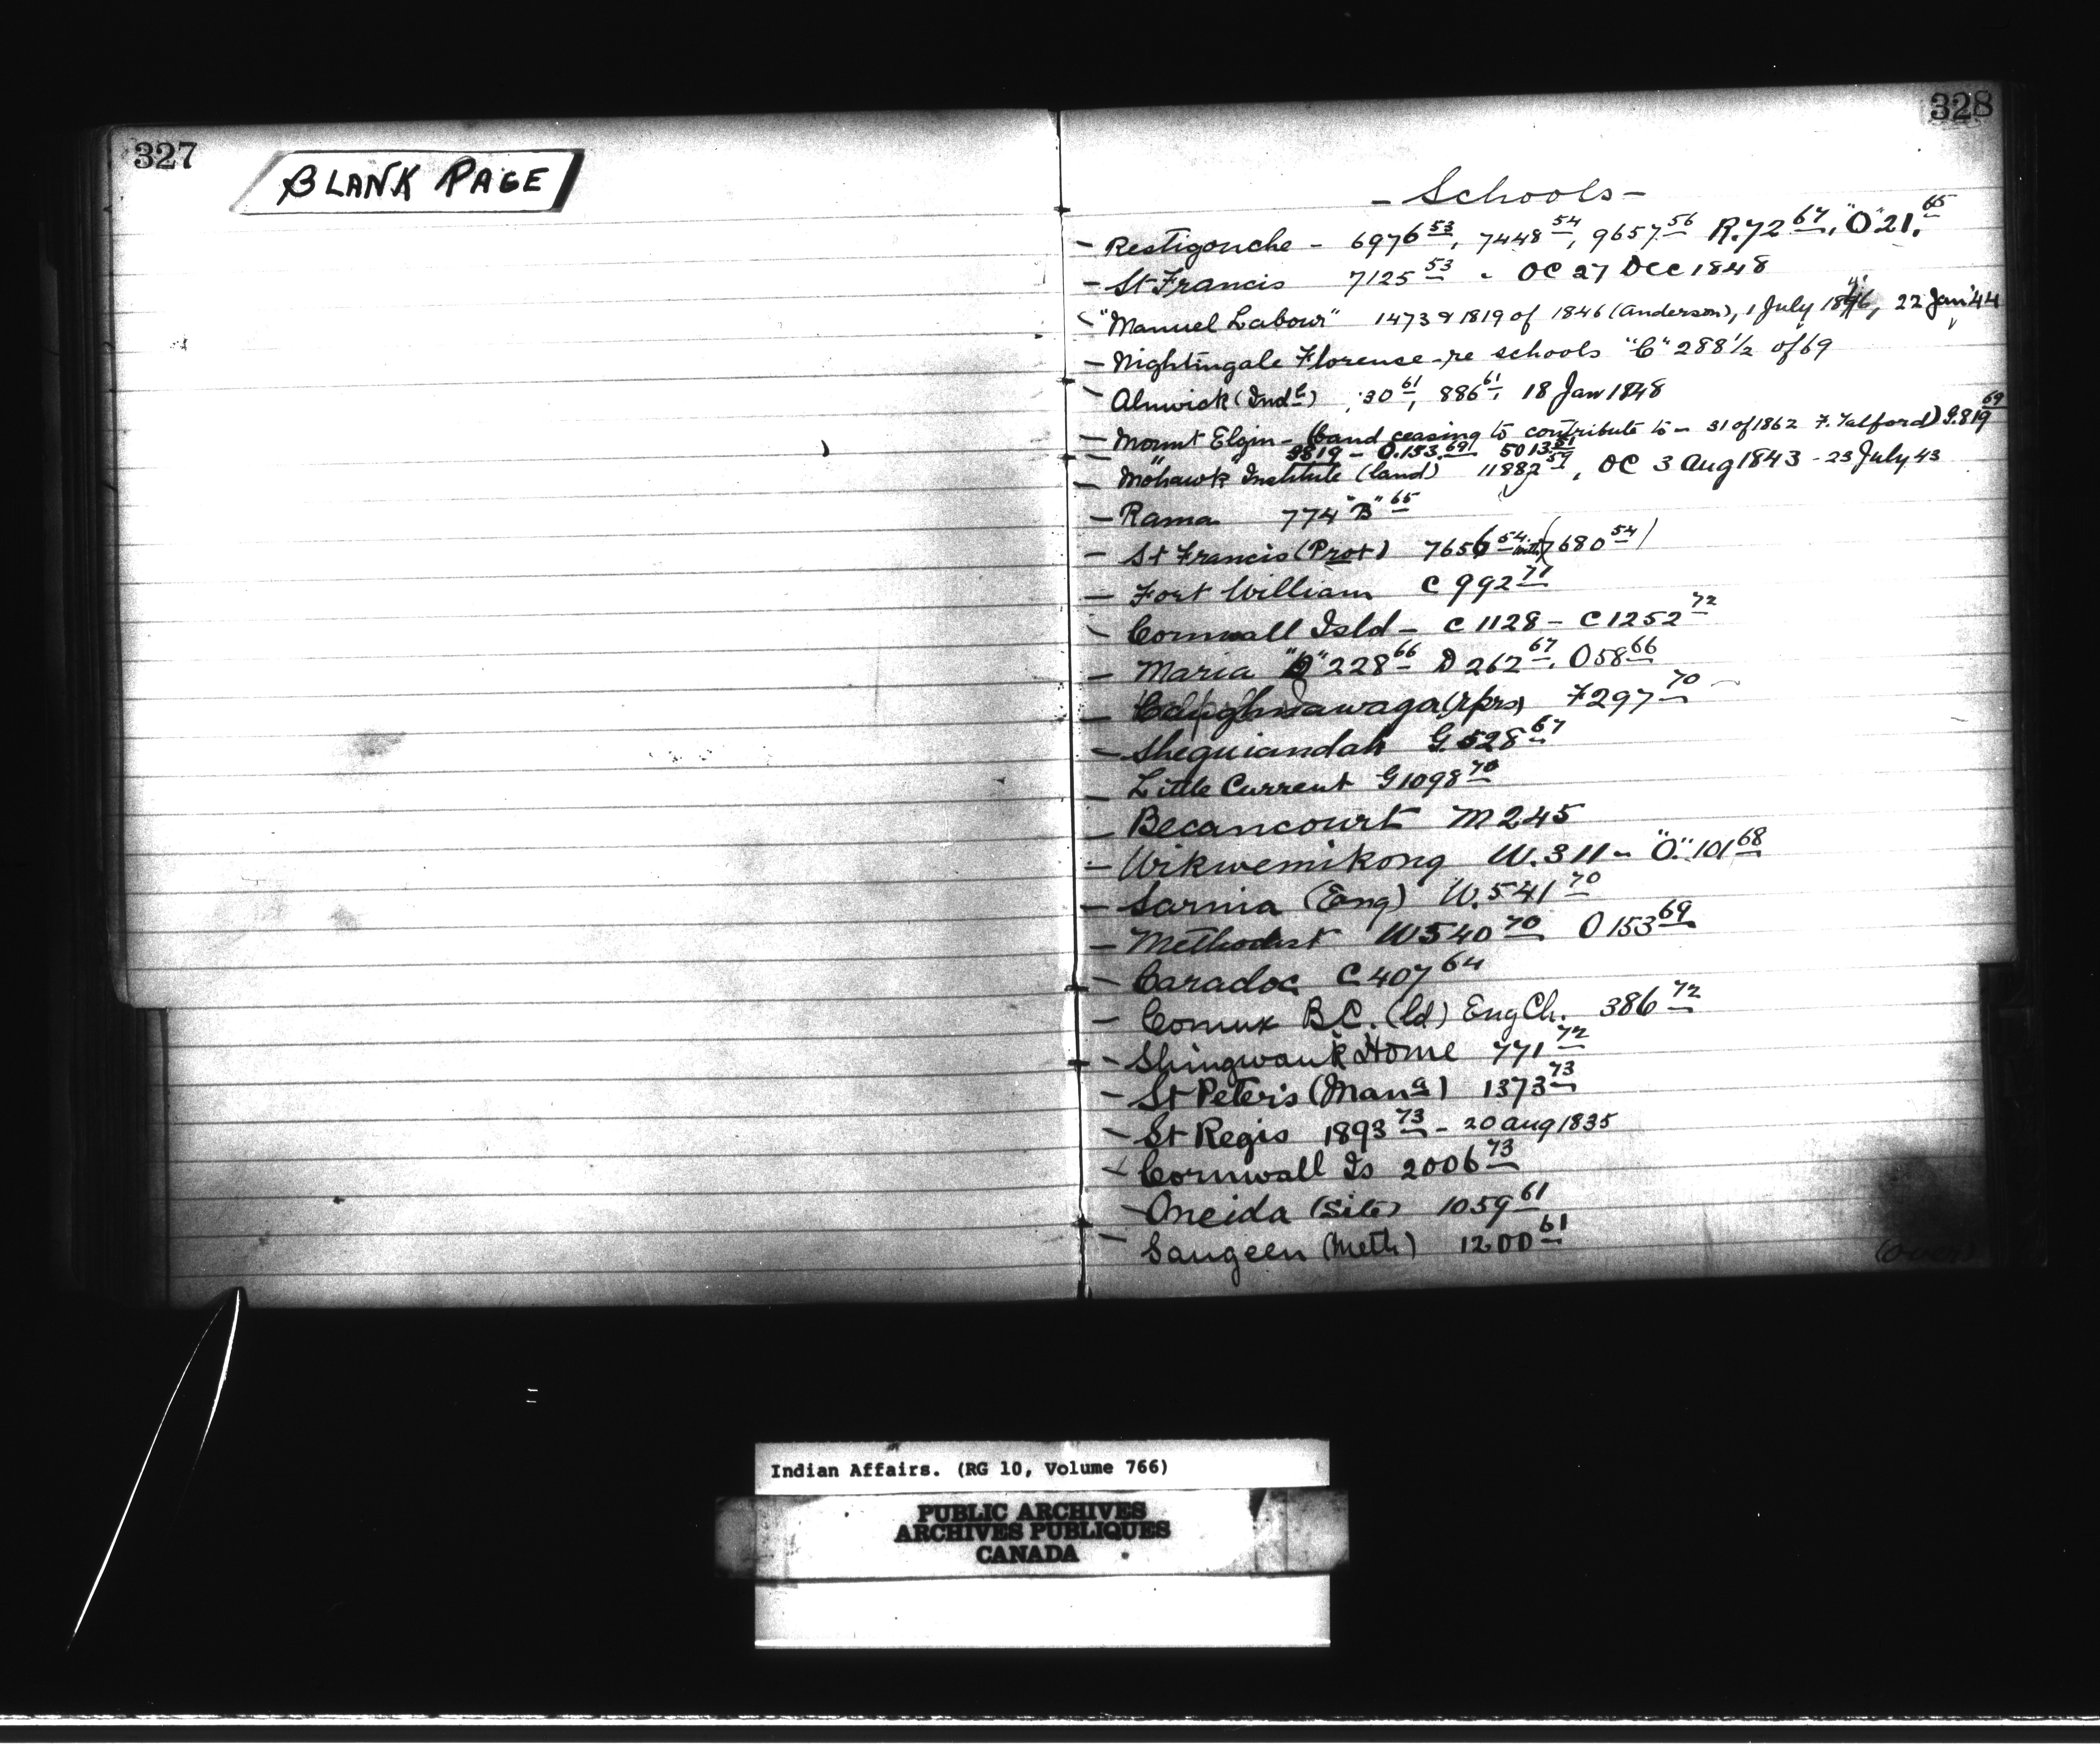 327
BLANK PAGE
328
- Schools -
- Restigouche - 6976 53, 7448 54, 9657 56 R.72 67, "O" 21. 65
- St Francis 7125 53 - OC 27 Dec 1848
"Manuel Labour" 1473 & 1819 of 1846 (Anderson), 1 July 1846, 22 Jan '44
- Nightingale Florense - re schools "C" 288 1/2 of 69
- Alnwick (Indl) 30 61, 886 61, 18 Jan 1848
- Mount Elgin - (band ceasing to contribute to - 31 of 1862 F. Talford) G.819 69
3819 - O.153 69 5013 51
- "Mohawk" Institute (land) 11882 59, OC 3 Aug 1843 - 23 July 43
- Rama 774 "B" 65
- St Francis (Prot) 7656 54 with (7680 54)
- Fort William C 992 71
- Cornwall Isld - C 1128 - C 1252 72
- Maria "D" 228 66 D 262 67, O 58 66
- Caughnawaga (rprs) F297 70
- Sheguiandah G.528 67
- Little Current G1098 70
- Becancourt M 245
- Wikwemikong W.311 - "O" 101 68
- Sarnia (Eng) W.541 70
- Methodist W540 70 O 153 69
- Caradoc C 407 64
- Comux B.C. (ld) Eng Ch. 386 72
- Shingwauk Home 771 72
- St Peter's (Mana) 1373 73
- St Regis 1893 73 - 20 Aug 1835
- Cornwall Is 2006 73
- Oneida (site) 1059 61
- Saugeen (Meth) 1200 61
(over)
Indian Affairs. (RG 10, Volume 766)
PUBLIC ARCHIVES
ARCHIVES PUBLIQUES
CANADA